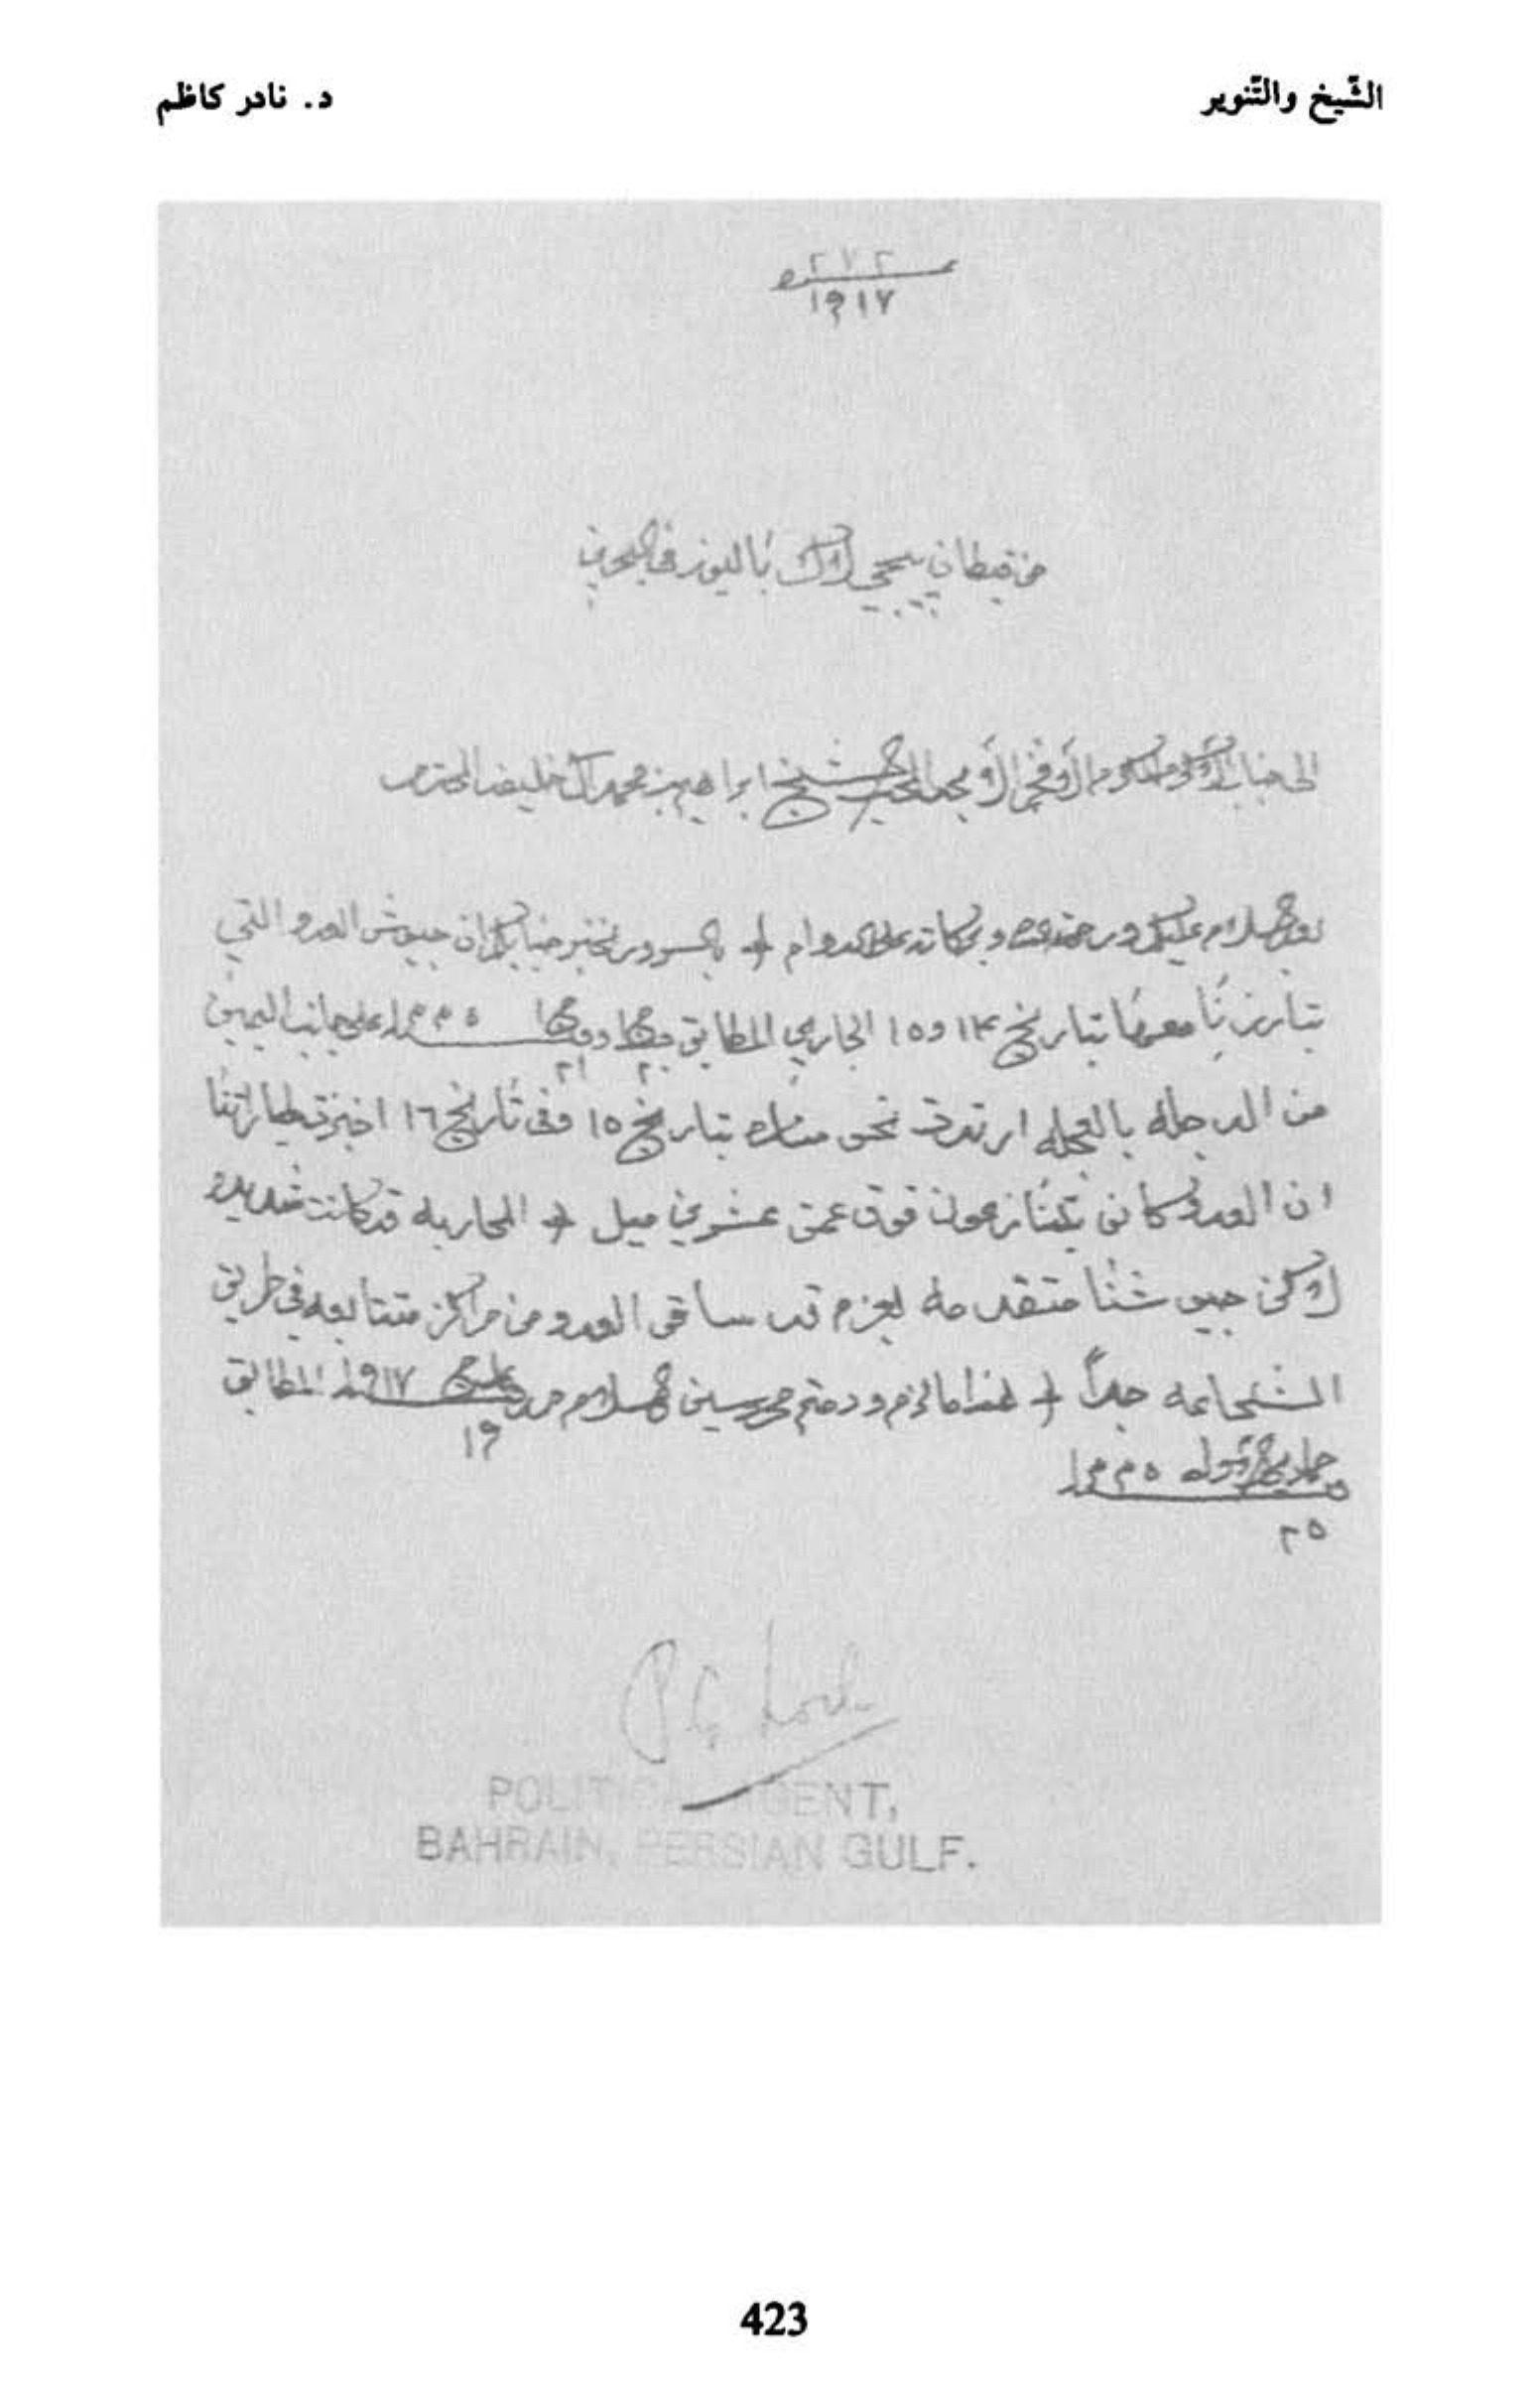 الشّيخ والتّنوير
د. نادر كاظم
٢٧٢
١٩١٧
من قبطان پي جي لاك باليوز في البحرين
الى جناب الأكرم المكرم الأفخم الأمجد المحب الشيخ ابراهيم بن محمد ال خليفه المحترم
بعد السلام عليكم ورحمة الله وبركاته على الدوام + بالسرور نخبر جنابكم ان جيوش العدو التي
تبارزنا معها بتاريخ ١٤ و١٥ الجاري المطابق ٢٠ و ٢١ ١٣٣٥ على جانب اليمين
من الدجله بالعجله ارتدت نحو بتاريخ ١٥ وفي تاريخ ١٦ اخبرت طياراتنا
ان العدو كانو يتنازعون فوق عمق عشرين ميل + المحاربه قد كانت شديدة
لاكن جيوشنا متقدمه بعزم قد ساقو العدو من مراكز متتابعه في طريق
الشجاعه جداً + هذا ما لزم ودمتم محروسين والسلام حرر ١٩ ١٩١٧ المطابق
١٣٣٥
٢٥
P G Loch
POLITICAL AGENT,
BAHRAIN, PERSIAN GULF.
423